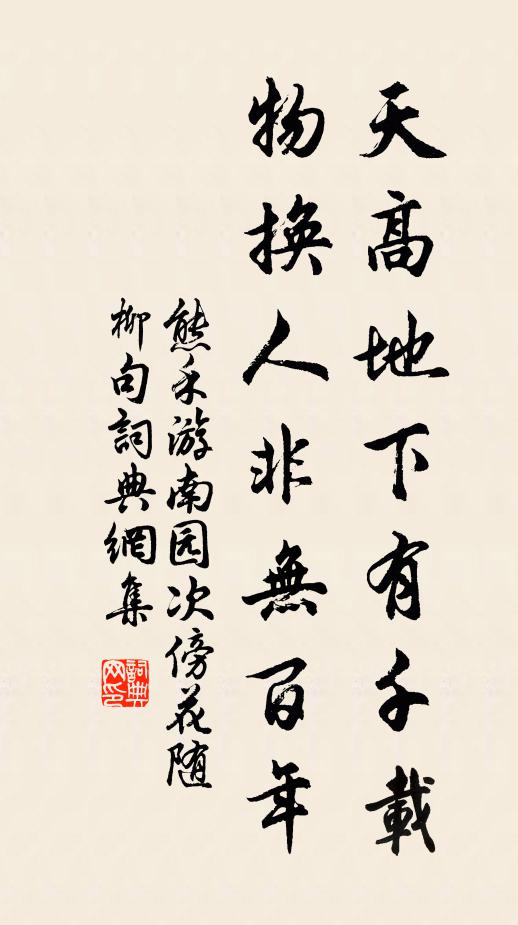 天高地下有千載
物換人非無百年
熊禾游南园次傍花随
柳句詞典網集
詞典网印